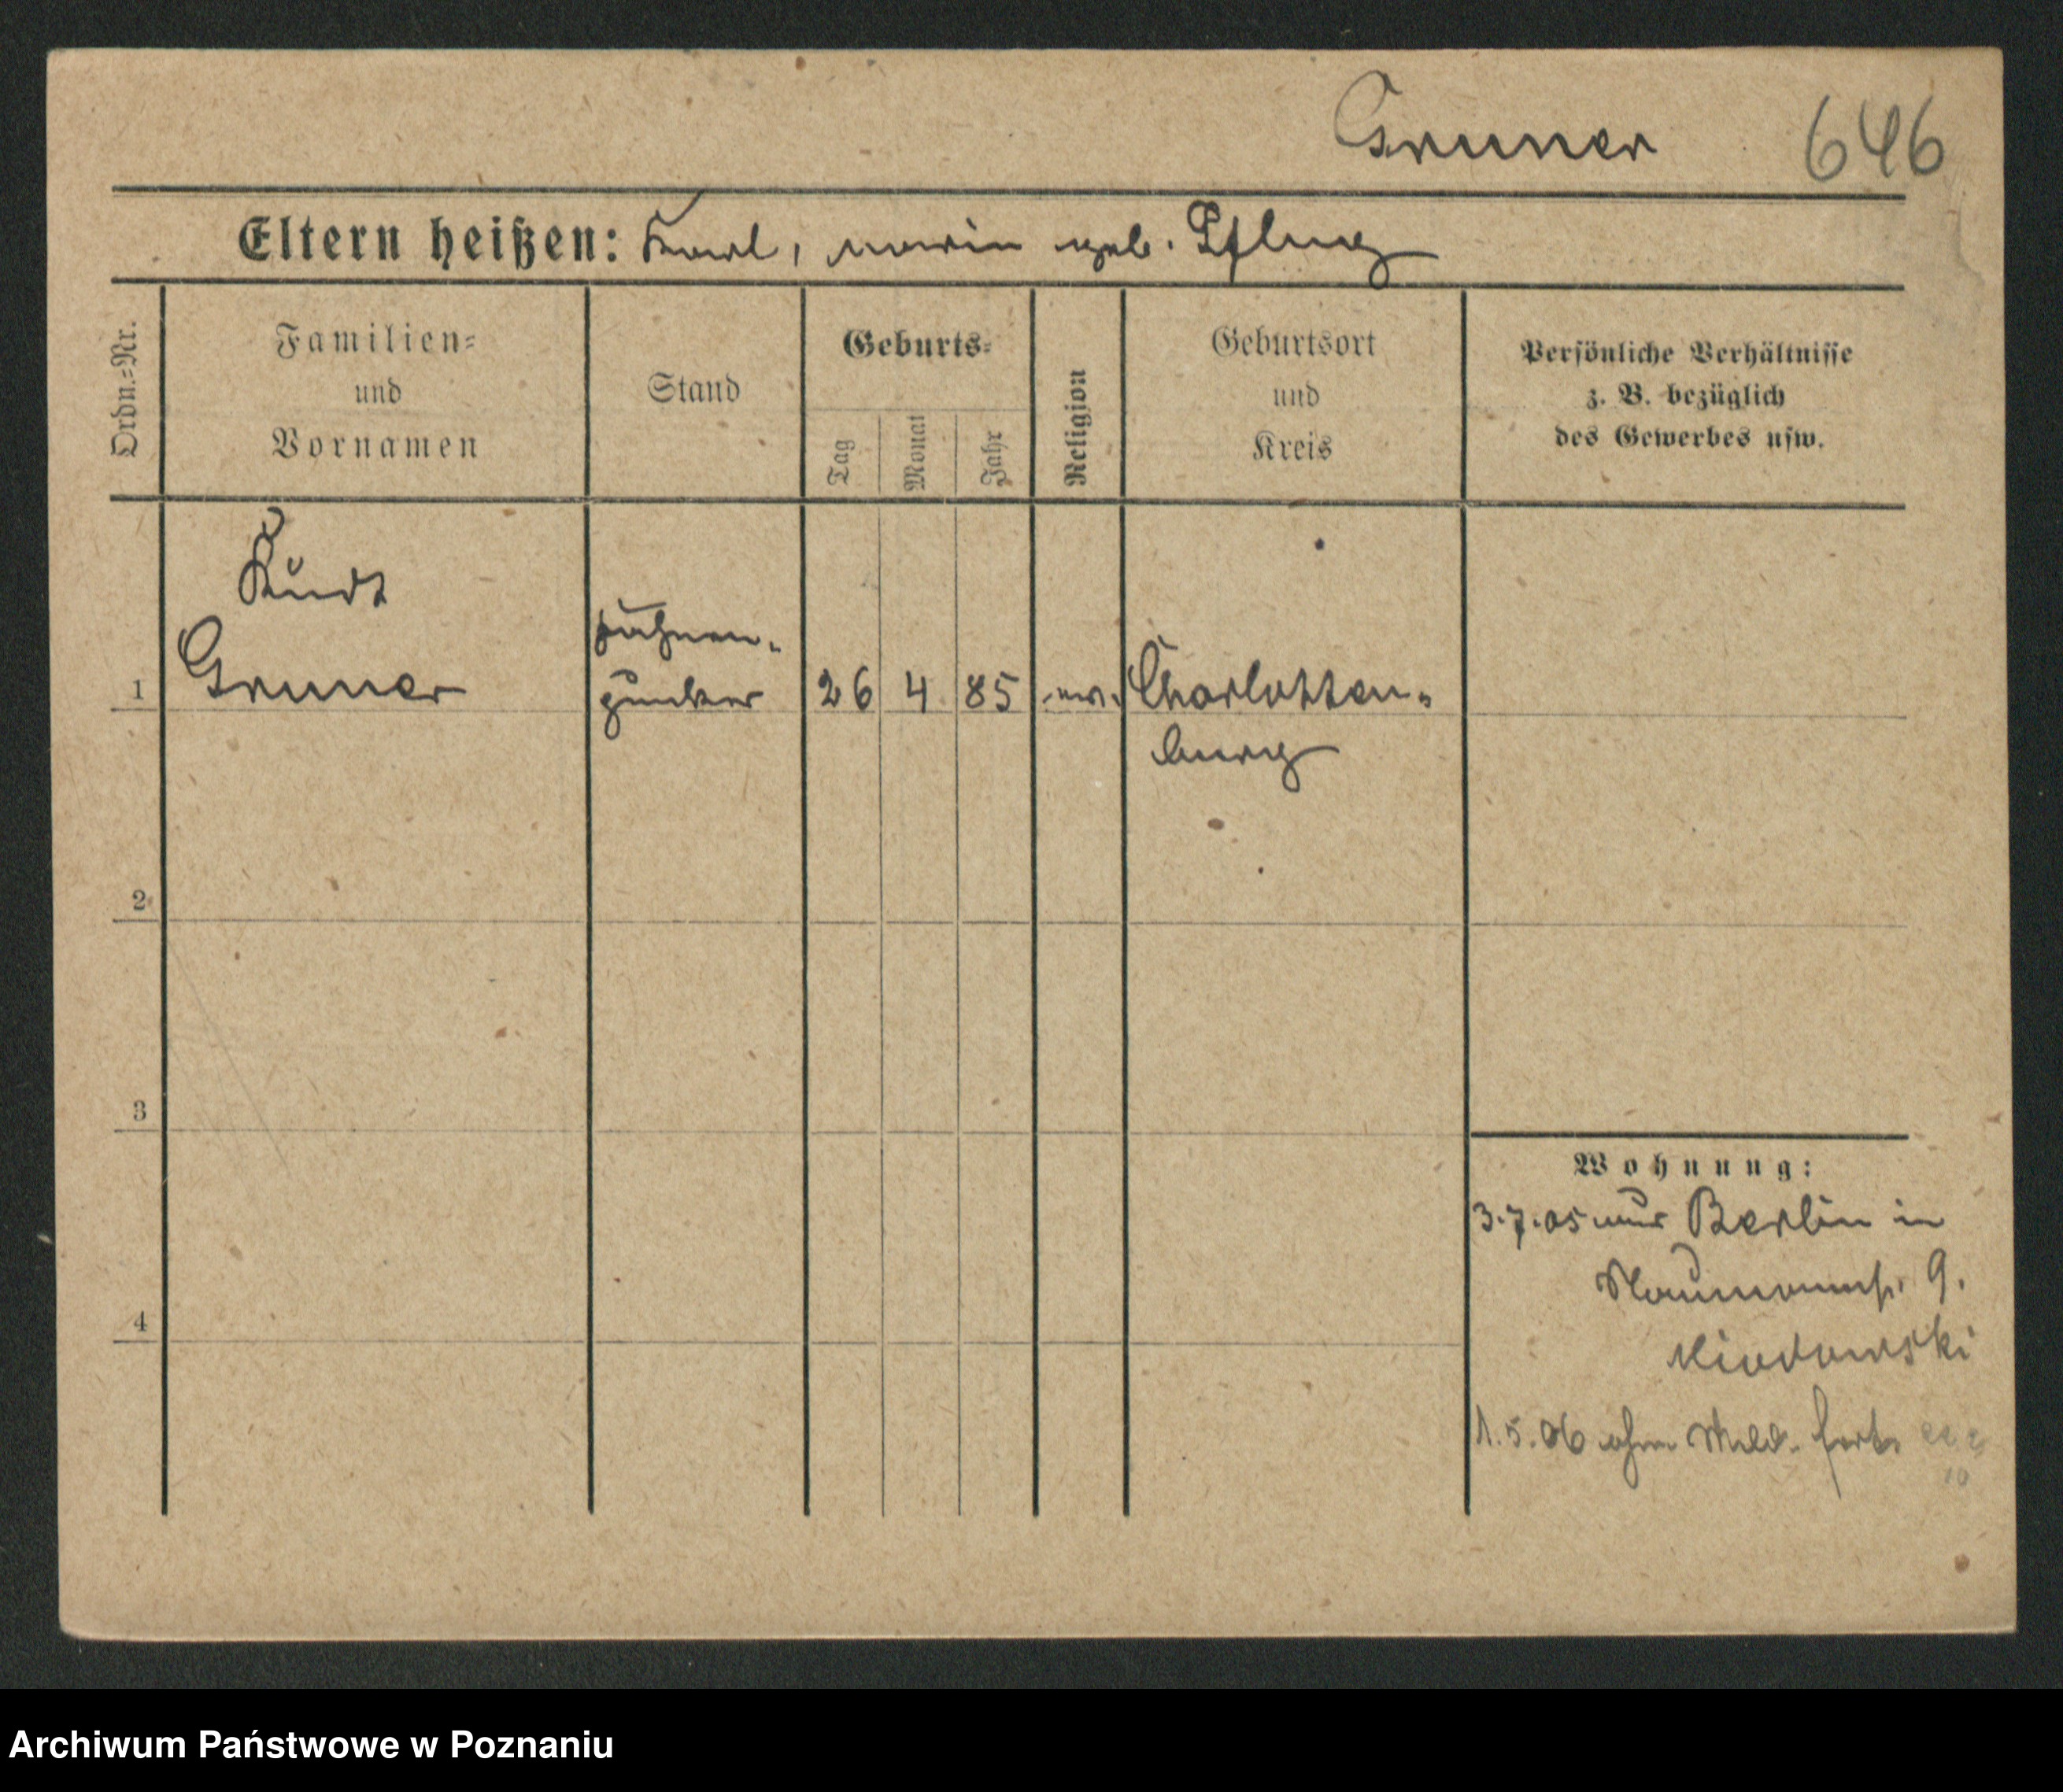 Gruner 646
Eltern heißen: Karl, Marie geb. Pflug
Ordn.-Nr.
Familien-
und
Vornamen
Stand
Geburts-
Tag
Monat
Jahr
Religion
Geburtsort
und
Kreis
Persönliche Verhältnisse
z. B. bezüglich
des Gewerbes usw.
Kurt
1 Gruner
Fahnen-
junker
26 4 85 ev.
Charlotten-
burg
2
3
4
Wohnung:
3.7.05 aus Berlin in
Naumannst. 9.
Miodowski
1.5.06 ohne Meld. fort
Archiwum Państwowe w Poznaniu